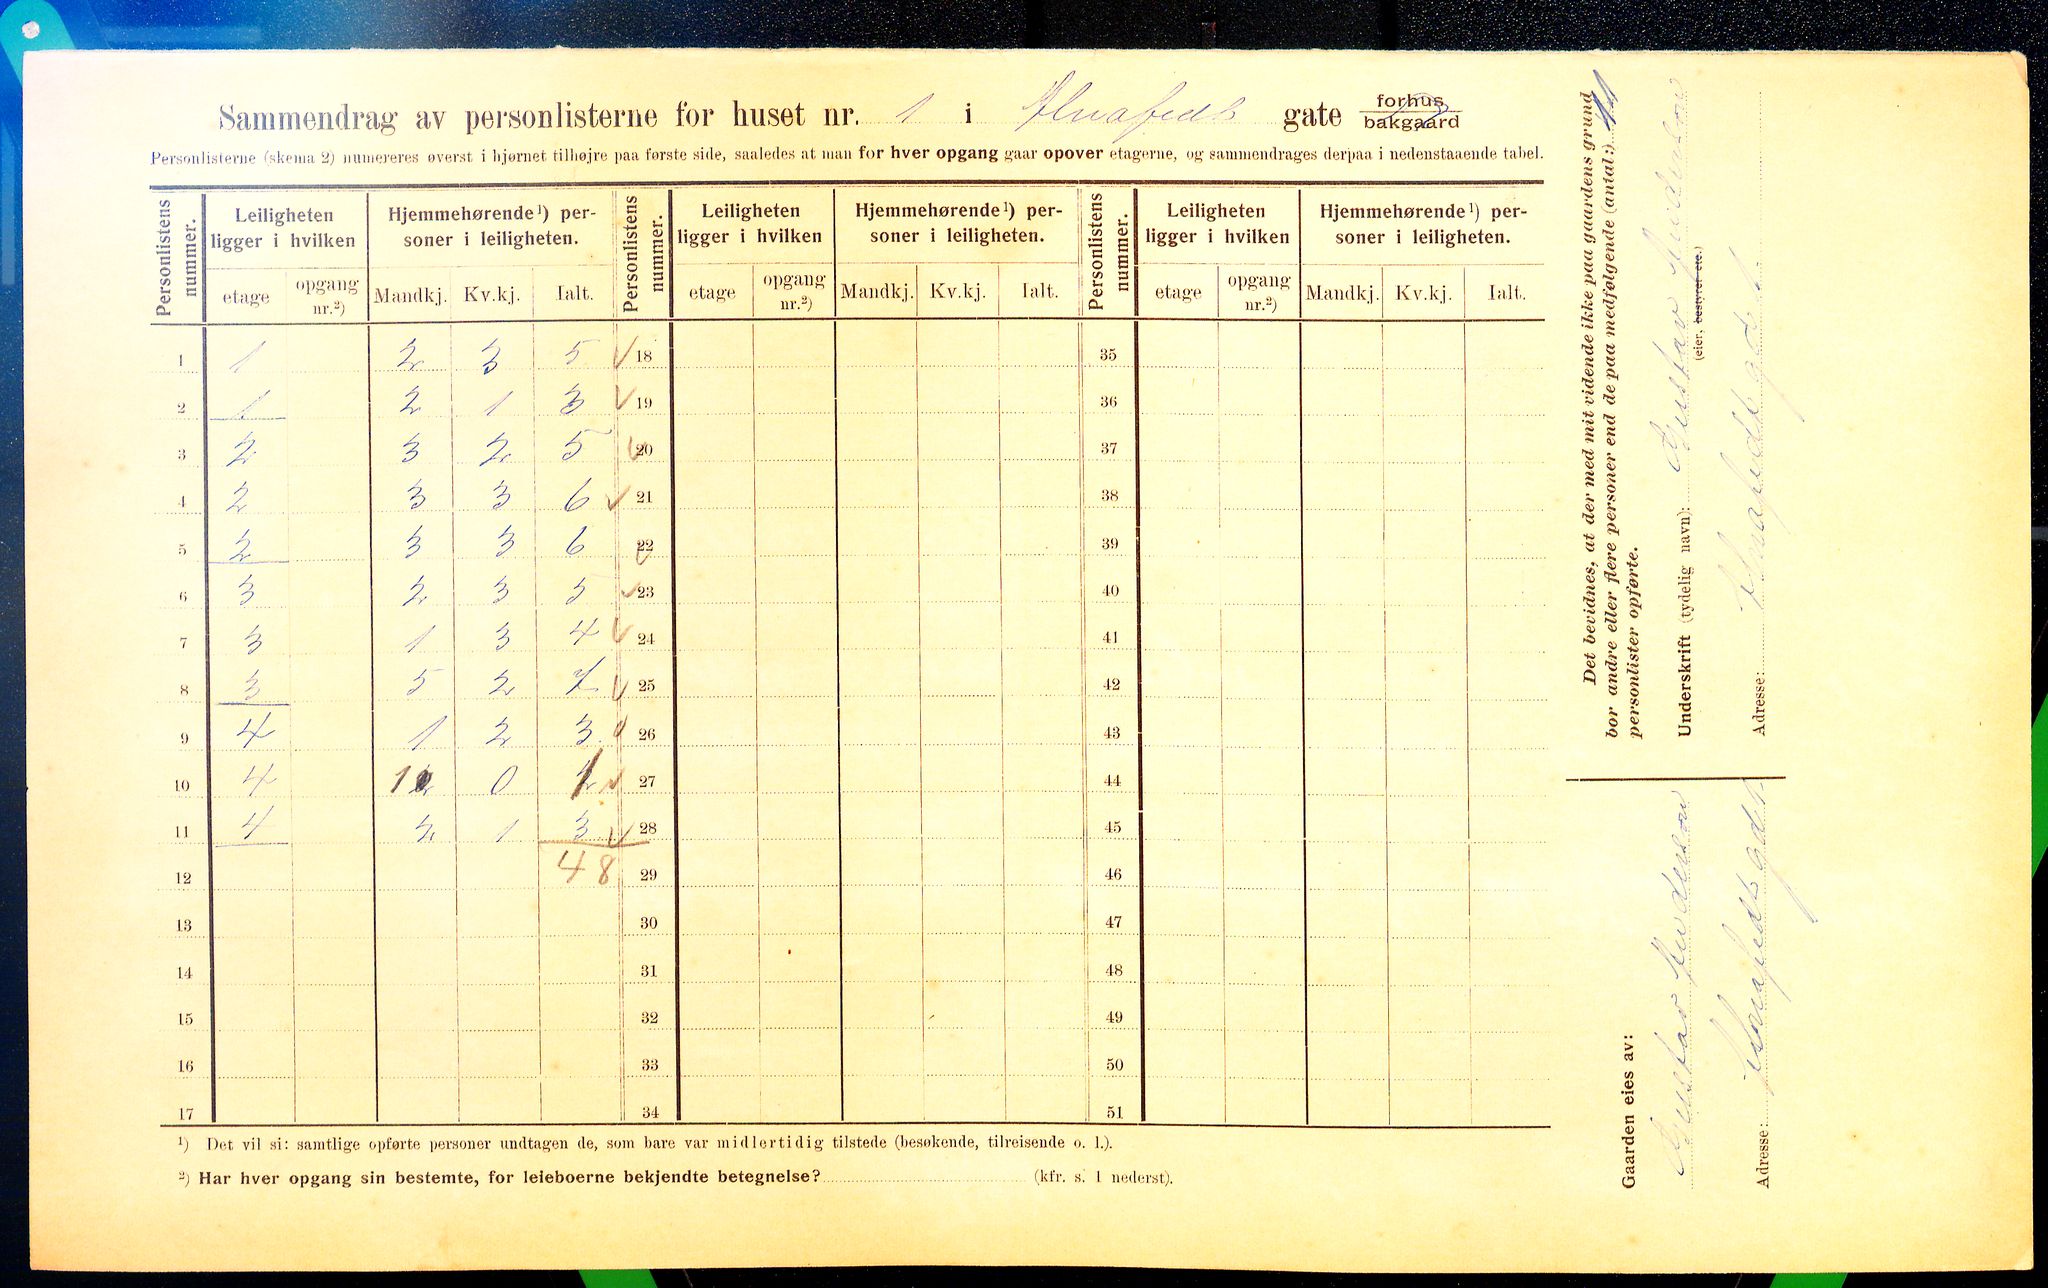 Sammendrag av personlisterne for huset nr. 1 i Alnafedts gate forhus bakgaard
Personlisterne (skema 2) numereres øverst i hjørnet tilhøjre paa første side, saaledes at man for hver opgang gaar opover etagerne, og sammendrages derpaa i nedenstaaende tabel.
Personlistens nummer. Leiligheten ligger i hvilken Hjemmehørende¹) personer i leiligheten. Personlistens nummer. Leiligheten ligger i hvilken Hjemmehørende¹) personer i leiligheten. Personlistens nummer. Leiligheten ligger i hvilken Hjemmehørende¹) personer i leiligheten.
etage opgang nr.²) Mandkj. Kv.kj. Ialt. etage opgang nr.²) Mandkj. Kv.kj. Ialt. etage opgang nr.²) Mandkj. Kv.kj. Ialt.
1 1 2 3 5 18 35
2 1 2 1 3 19 36
3 2 3 2 5 20 37
4 2 3 3 6 21 38
5 2 3 3 6 22 39
6 3 2 3 5 23 40
7 3 1 3 4 24 41
8 3 5 2 7 25 42
9 4 1 2 3 26 43
10 4 1 0 1 27 44
11 4 2 1 3 28 45
12 48 29 46
13 30 47
14 31 48
15 32 49
16 33 50
17 34 51
¹) Det vil si: samtlige opførte personer undtagen de, som bare var midlertidig tilstede (besøkende, tilreisende o. l.).
²) Har hver opgang sin bestemte, for leieboerne bekjendte betegnelse? (kfr. s. 1 nederst).
Det bevidnes, at der med mit vidende ikke paa gaardens grund
bor andre eller flere personer end de paa medfølgende (antal:) 11
personlister opførte.
Underskrift (tydelig navn): Gustav Andersen
(eier, bestyrer etc.)
Adresse: Alnafedts gade 1
Gaarden eies av:
Gustav Andersen
Adresse: Alnafedts gade 1